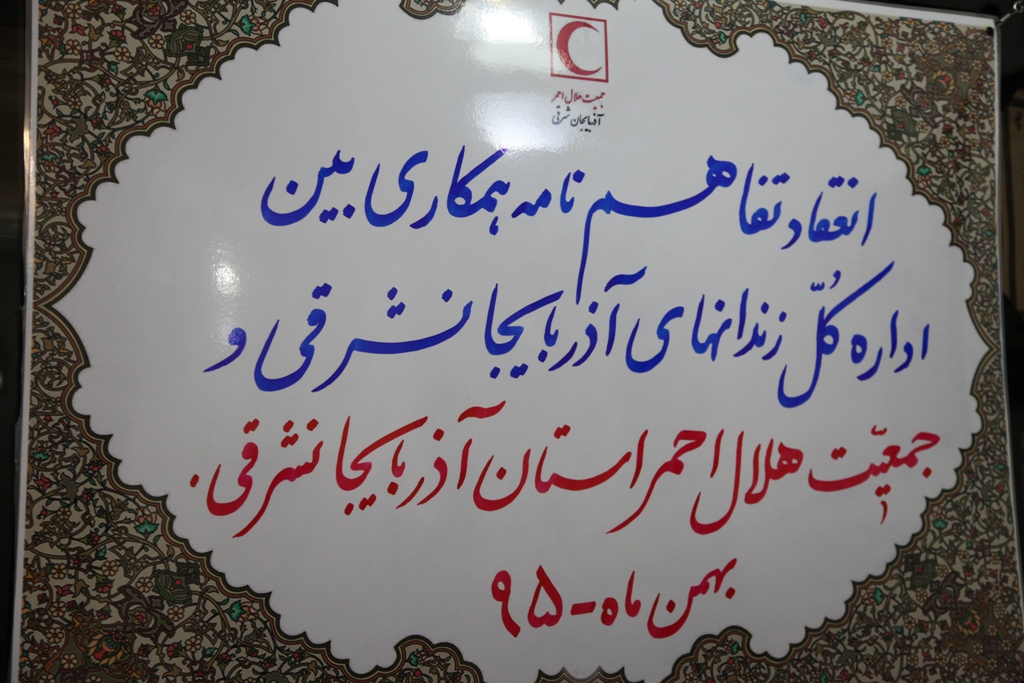 جمعیت هلال احمر
آذربایجان شرقی
انعقاد تفاهم نامه همکاری بین
اداره کُلّ زندانهای آذربایجانشرقی و
جمعیّت هلال احمر استان آذربایجانشرقی.
بهمن ماه - ۹۵